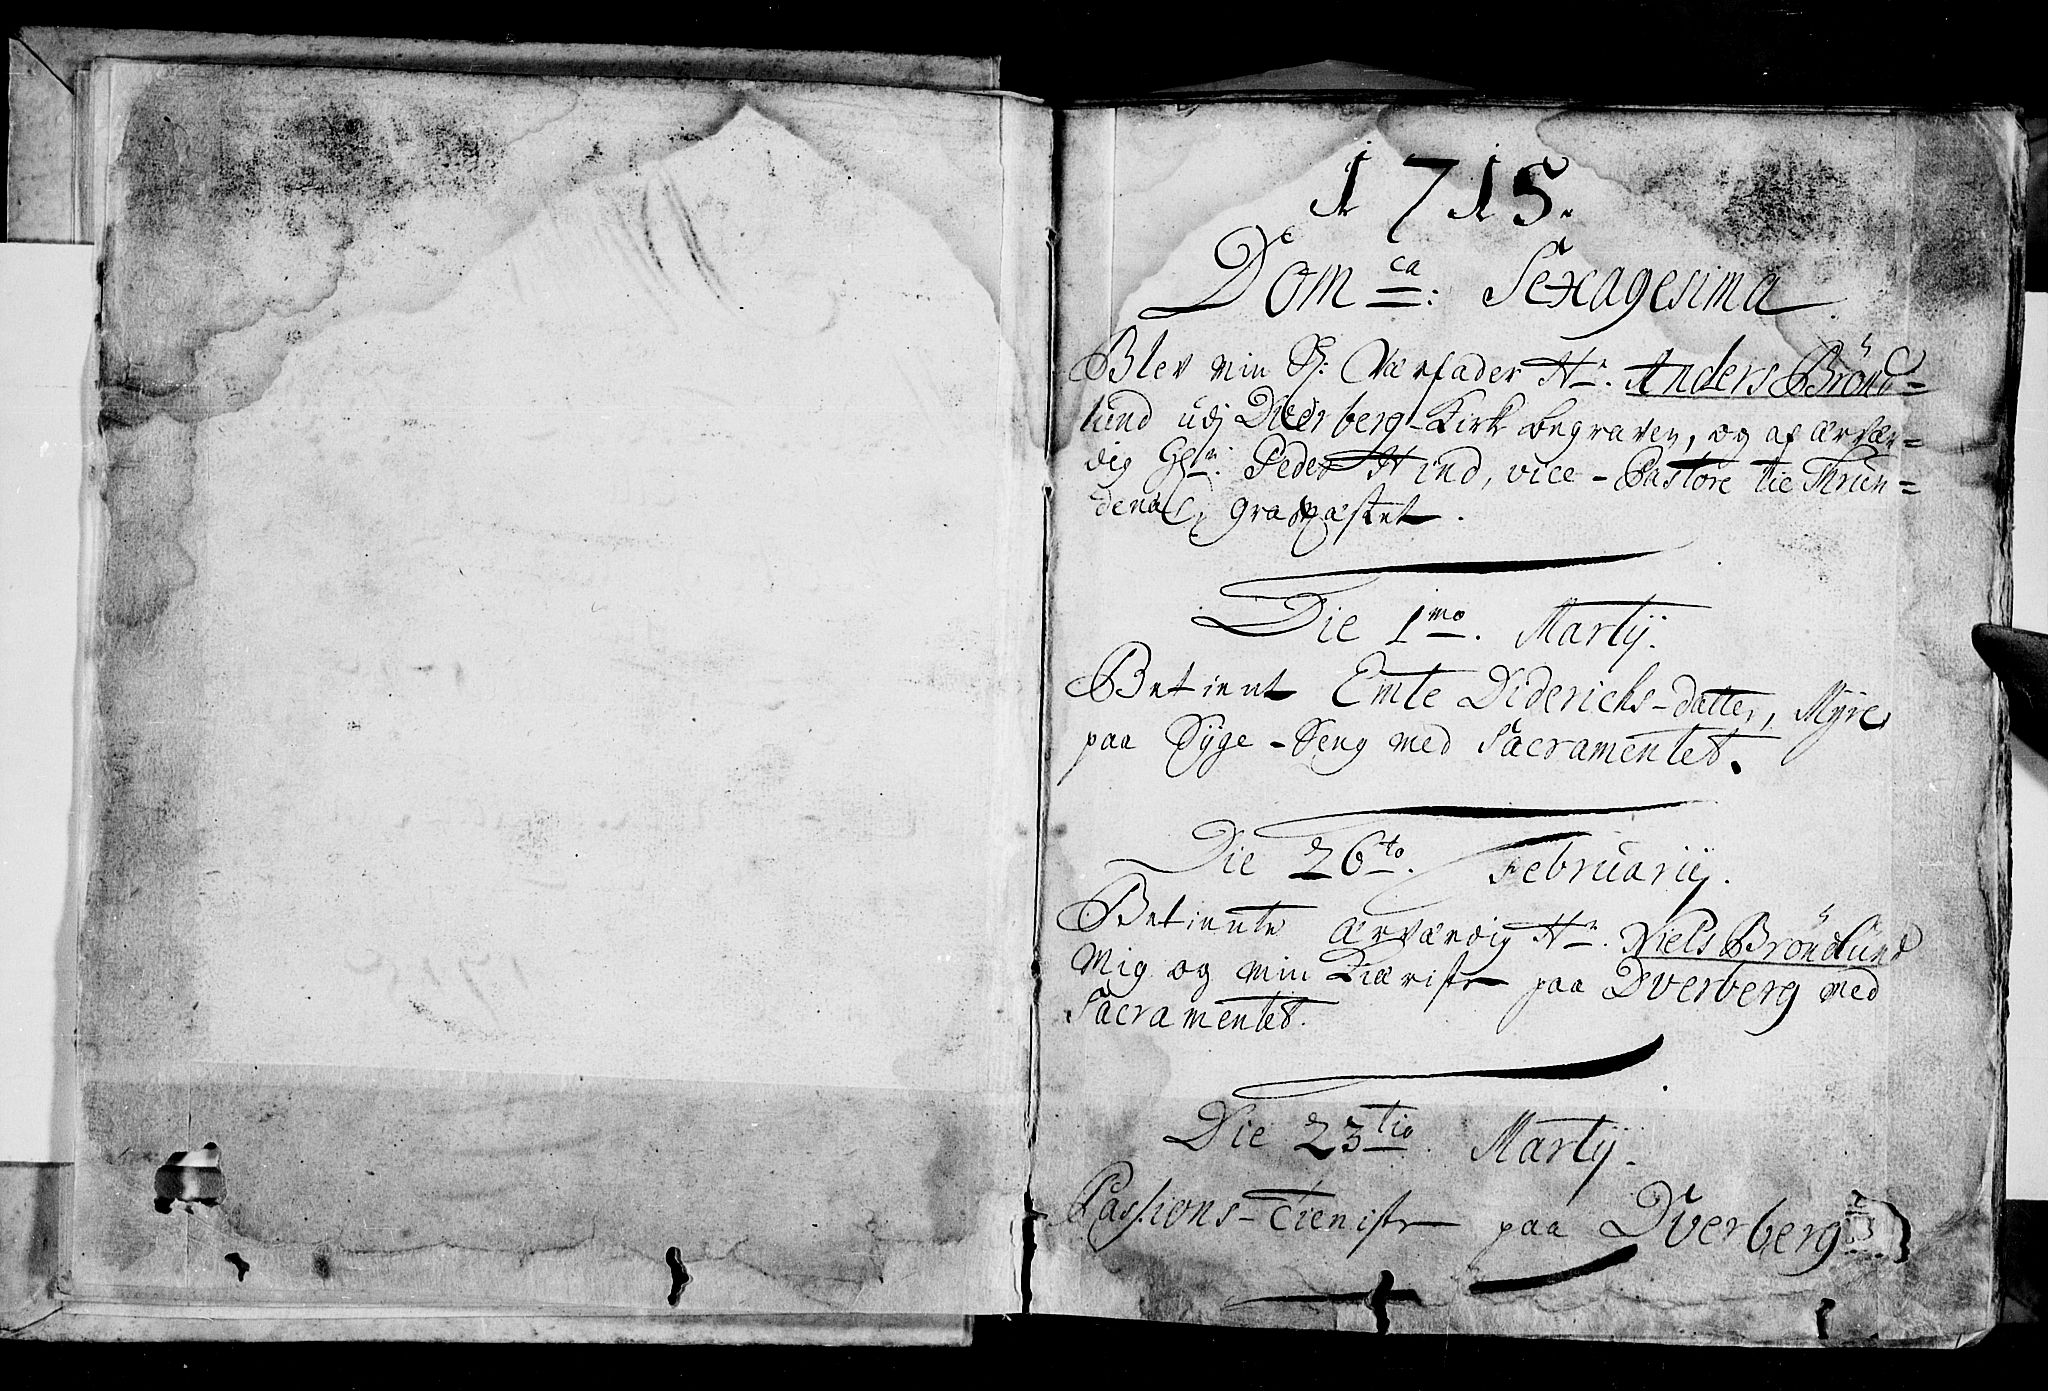 1715.
Dom ca: Sexagesima.
Blev min S: Værfader Hr. Anders Brönd=
lund udj Dverberg-Kirk begraven, og af ærvær=
dig Hr: Peder Hind, vice-Pastore til Thrun=
denæs, gravfæstet.
Die 1mo. Martij.
Betient Emte Diderichs-datter, Myre,
paa Syge-Seng med Sacramentet.
Die 26to. Februarij.
Betiente ærværdig Hr. Niels Bröndlund
Mig og min Kiæriste paa Dverberg med
Sacramentet.
Die 23tio. Martij.
Passions-Tieniste paa Dverberg